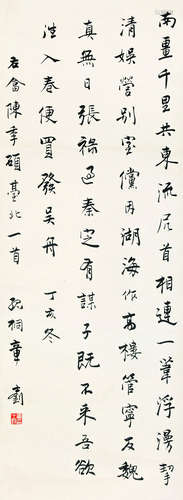 南畺千里共東流尻首相連一葦浮漫挈
清娛營別室儻因湖海作高樓管寧反魏
真無日張祿過秦定有謀子既不來吾欲
往入春便買發吳舟 丁亥冬
右畣陳季碩臺北一首 孤桐章士釗